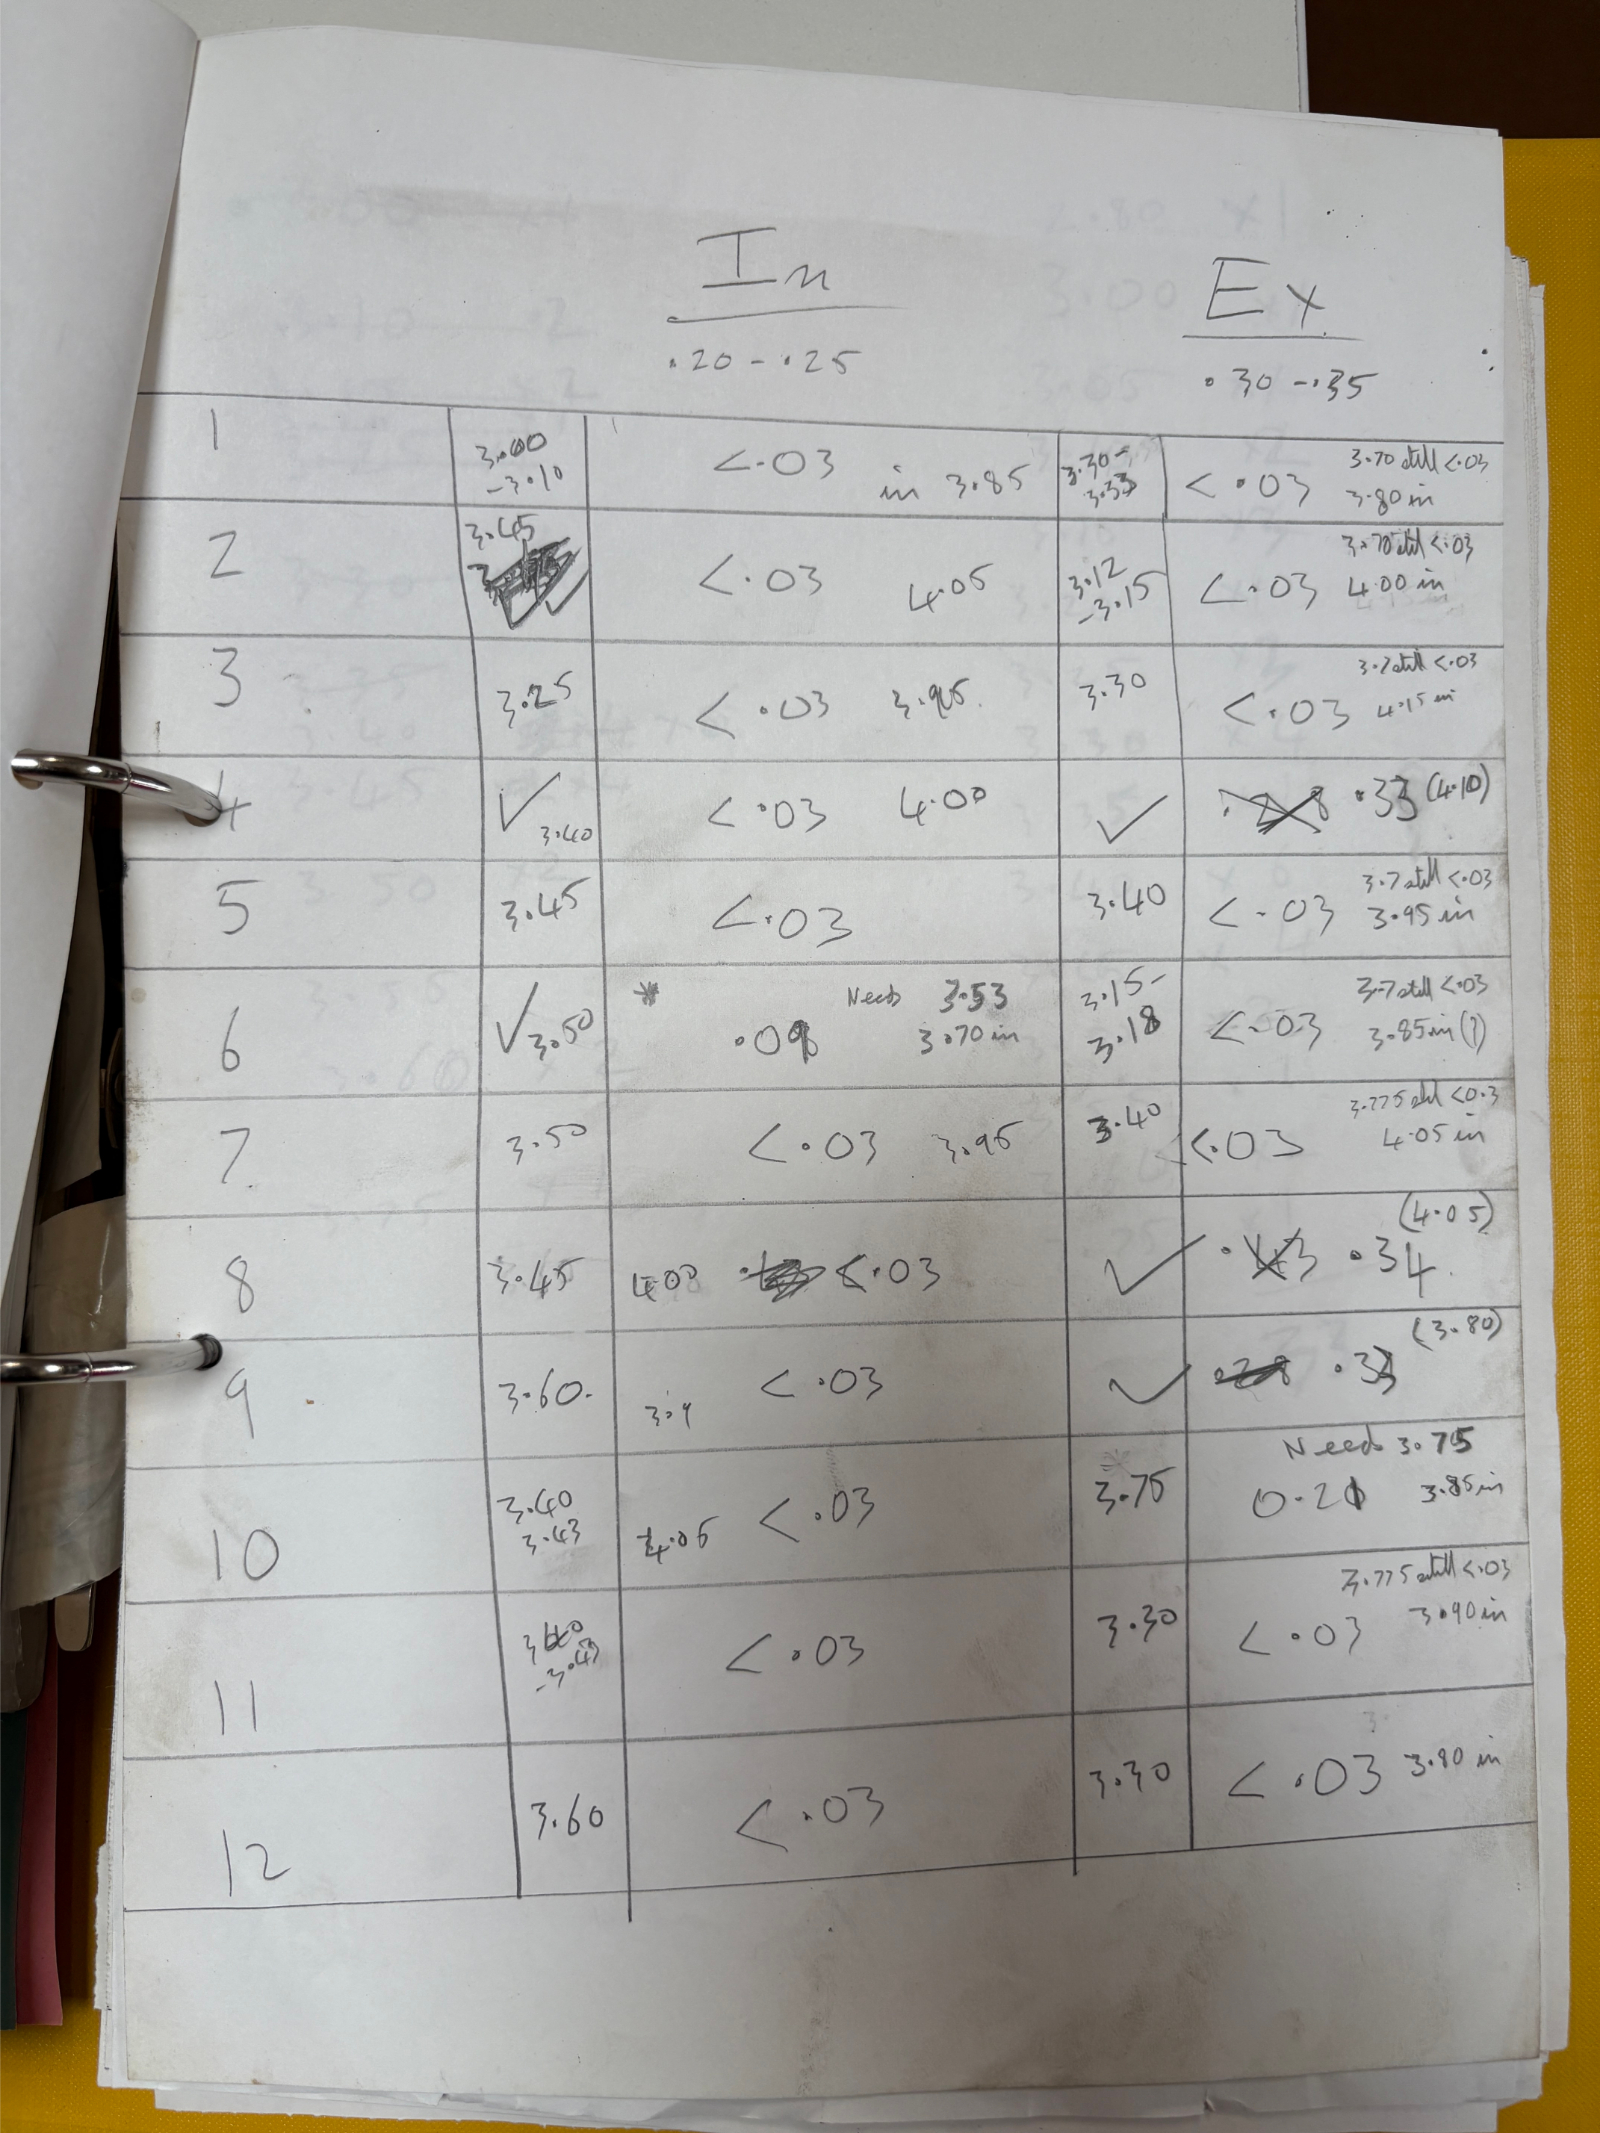 In
.20 - .25
Ex
.30 - .35
1
3.00
-3.10
<.03
in 3.85
3.30-
3.33
<.03
3.70 still <.03
3.80 in
2
3.45
<.03
4.05
3.12
-3.15
<.03
3.70 still <.03
4.00 in
3
3.25
<.03
3.30
<.03
3.7 still <.03
4.15 in
4
✓
3.40
<.03
4.00
✓
.33 (4.10)
5
3.45
<.03
3.40
<.03
3.7 still <.03
3.95 in
6
✓ 3.50
*
Needs 3.53
.09
3.70 in
3.15-
3.18
<.03
3.7 still <.03
3.85 in (?)
7
3.50
<.03
3.95
3.40
<.03
3.775 still <0.3
4.05 in
8
3.45
4.00
<.03
✓
(4.05)
.34
9
3.60
3.9
<.03
✓
(3.80)
.33
10
3.40
3.43
4.05
<.03
3.75
Needs 3.75
0.21
3.85 in
11
-3.43
<.03
3.30
<.03
3.775 still <.03
3.90 in
12
3.60
<.03
3.30
<.03
3.80 in